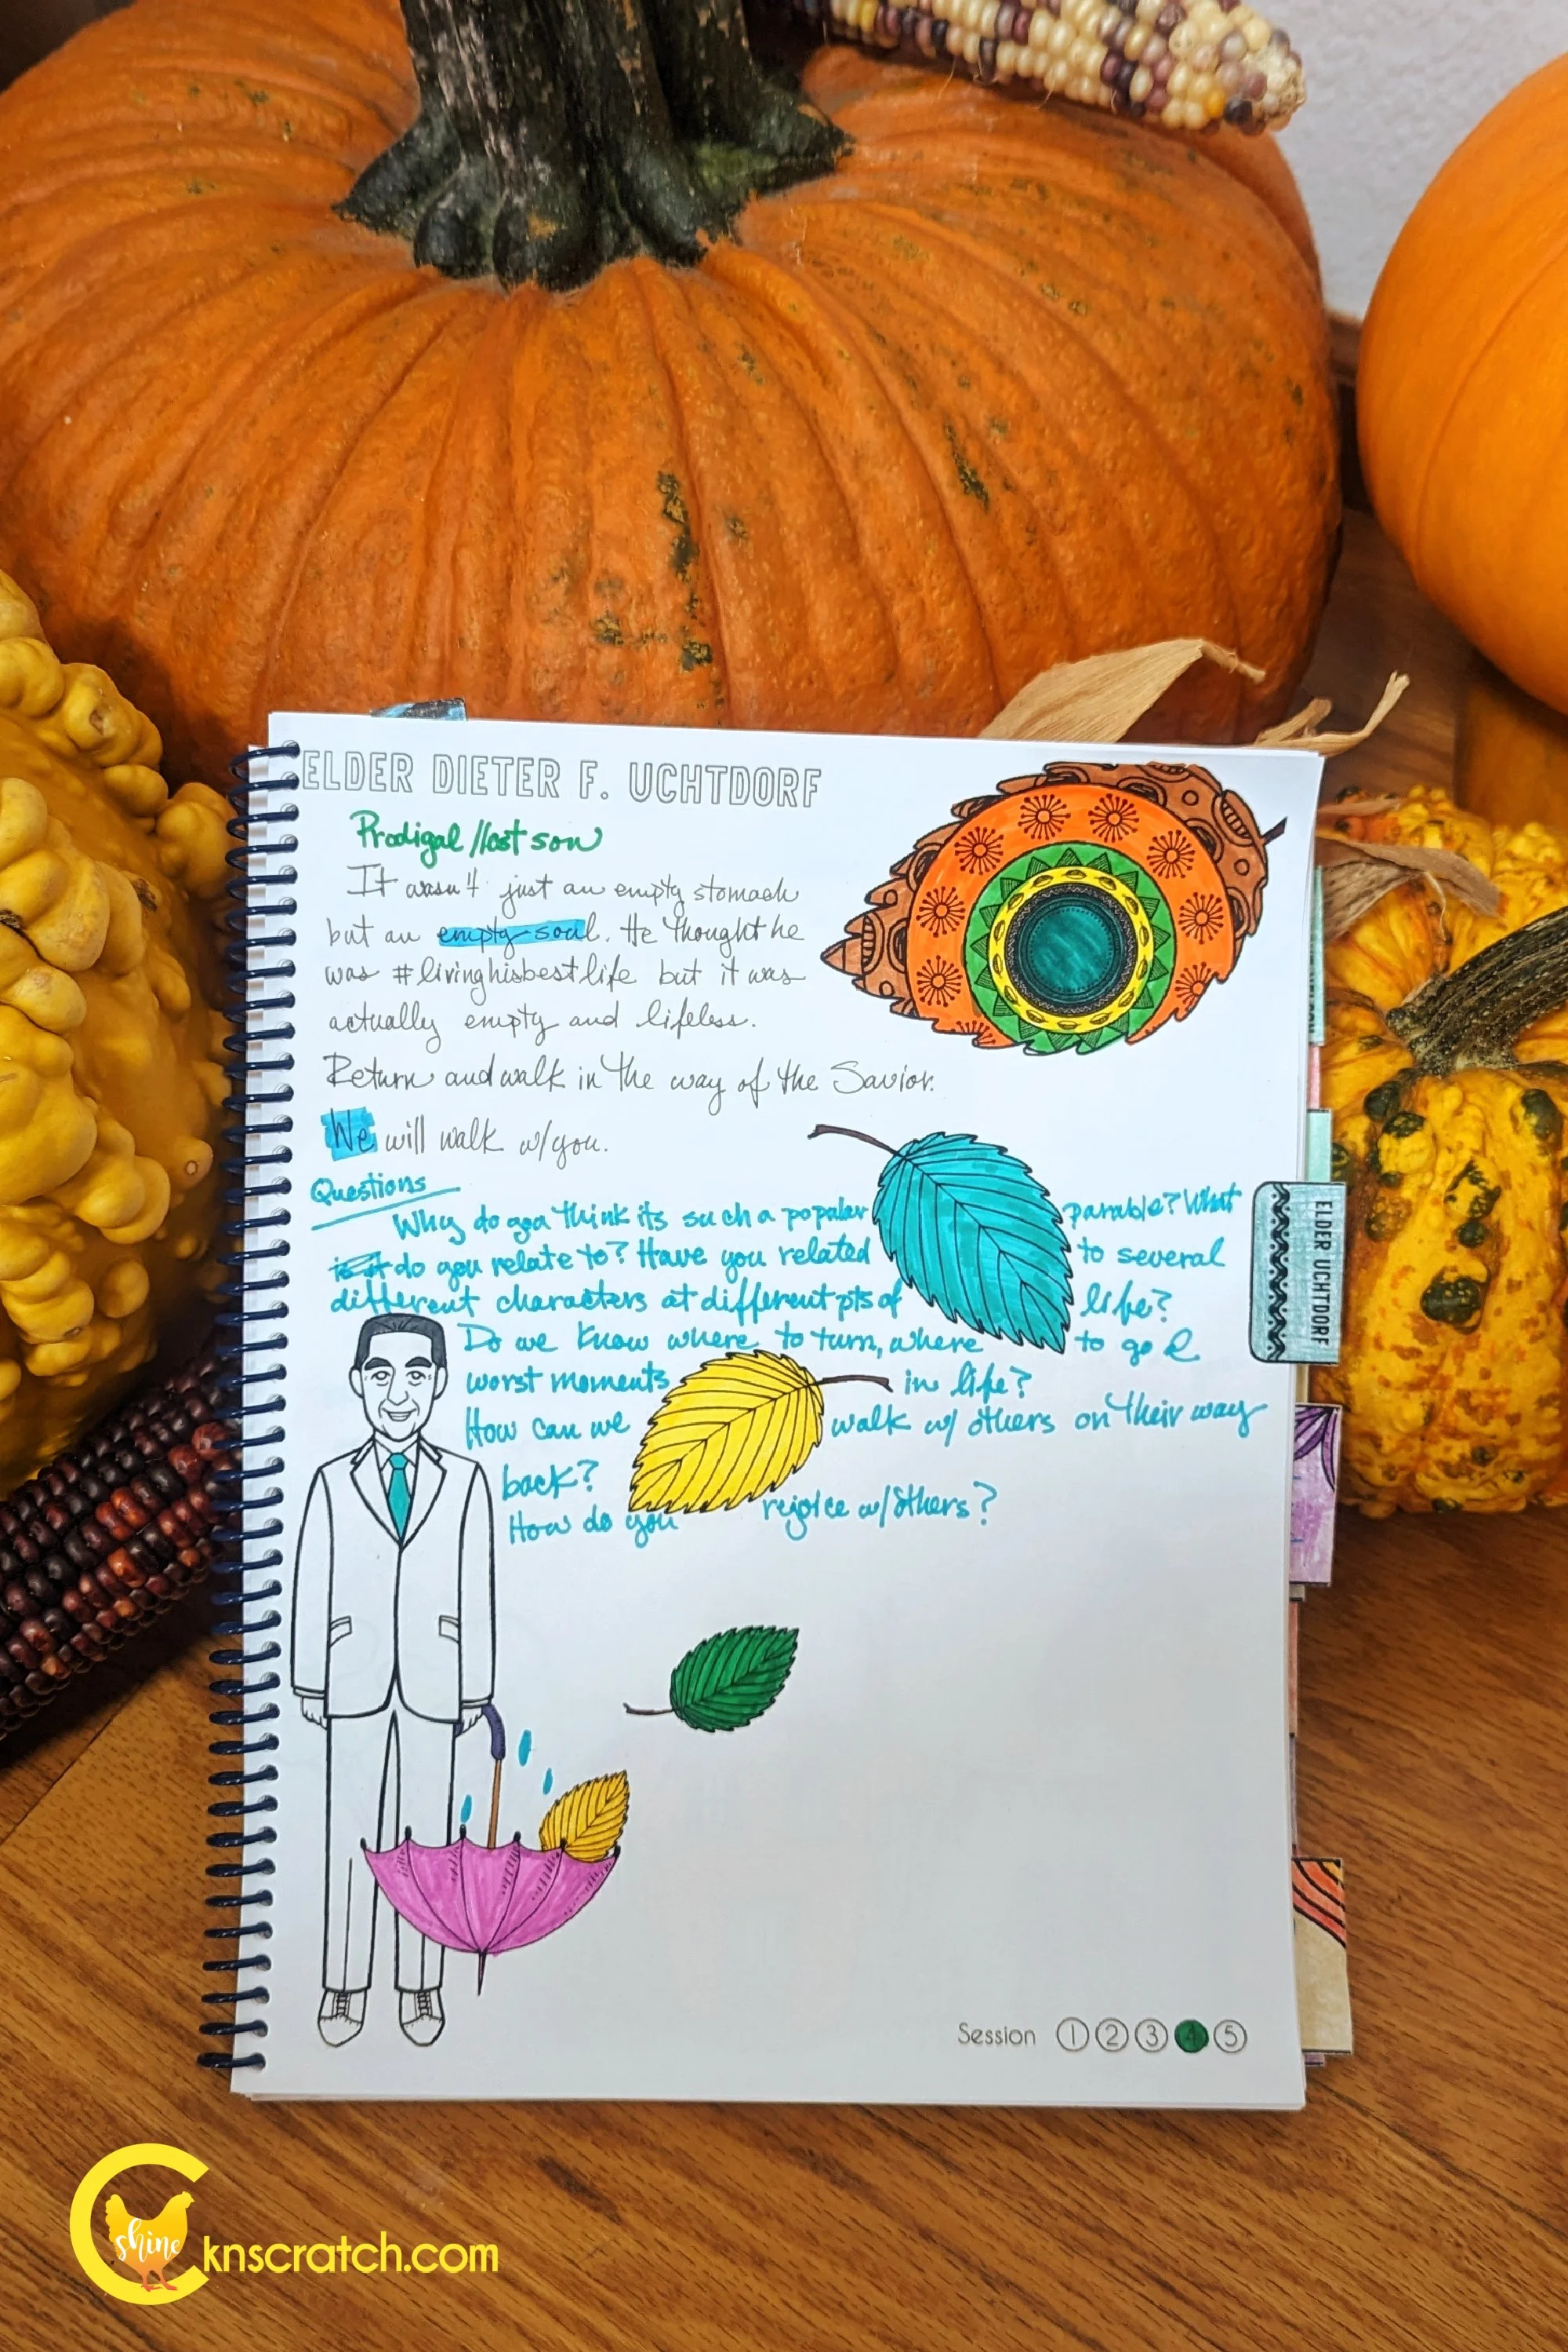 ELDER DIETER F. UCHTDORF
Prodigal/lost son
It wasn't just an empty stomach
but an empty soul. He thought he
was #livinghisbestlife but it was
actually empty and lifeless.
Return and walk in the way of the Savior.
We will walk w/you.
Questions
Why do you think its such a popular parable? What
do you relate to? Have you related to several
different characters at different pts of life?
Do we know where to turn, where to go
worst moments in life?
How can we walk w/ others on their way
back?
How do you rejoice w/others?
ELDER UCHTDORF
Session 1 2 3 4 5
shine
Cknscratch.com